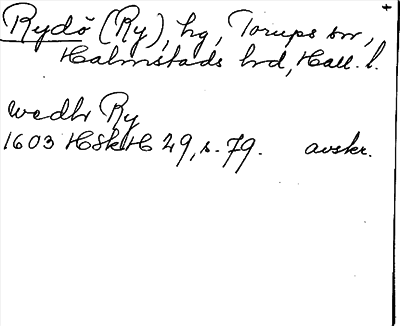 Rydö (Ry), hg, Torups sn,
Halmstads hrd, Hall. l.
wedh Ry
1603 HSkH 49, s. 79. avskr.